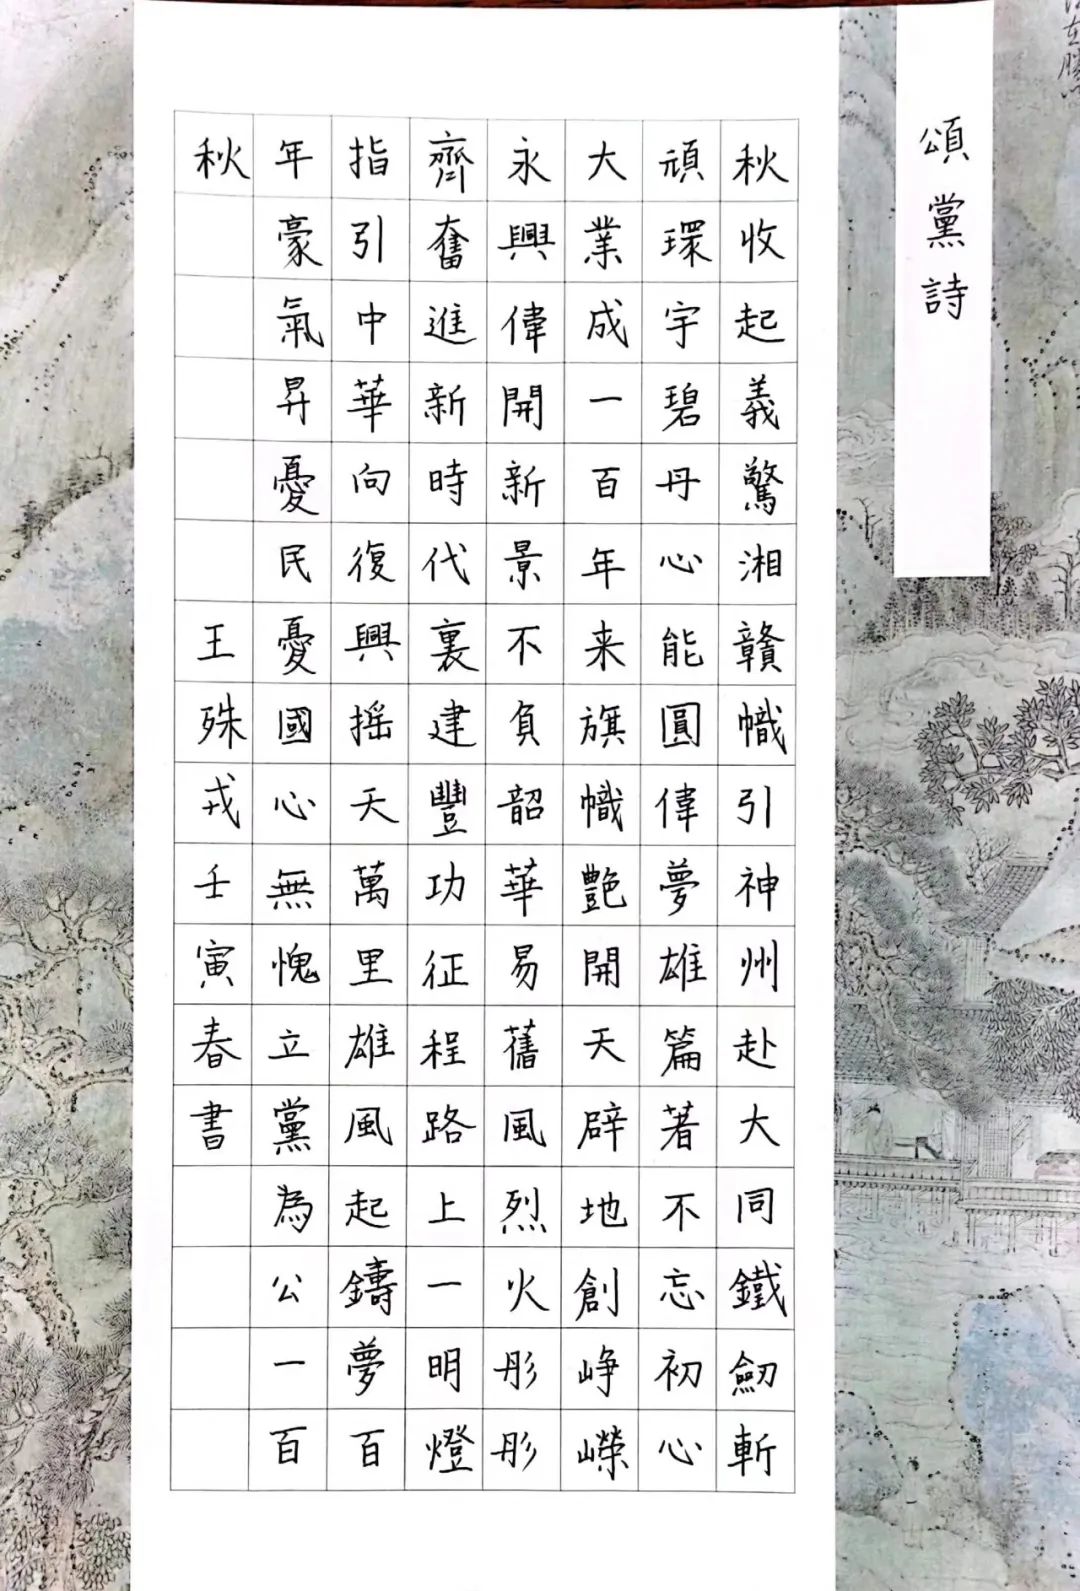 頌黨詩
秋收起義驚湘贛幟引神州赴大同鐵劒斬
頑環宇碧丹心能圓偉夢雄篇著不忘初心
大業成一百年来旗幟艷開天辟地創崢嶸
永興偉開新景不負韶華易舊風烈火彤彤
齊奮進新時代裏建豐功征程路上一明燈
指引中華向復興摇天萬里雄風起鑄夢百
年豪氣昇憂民憂國心無愧立黨為公一百
秋 王殊戎壬寅春書